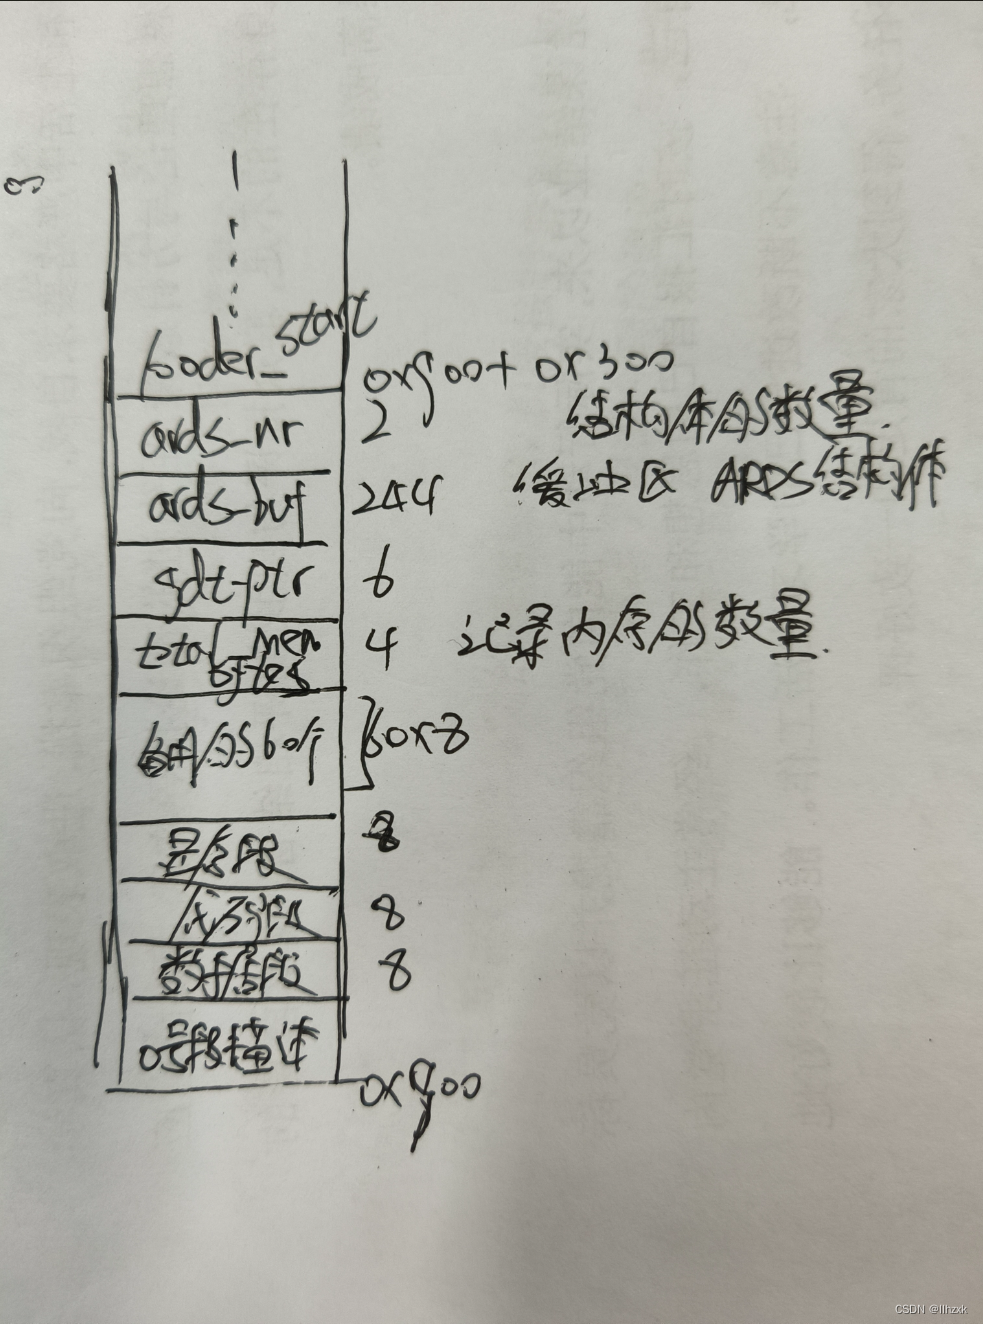 loader_start
0x900+0x300
ards_nr 2 结构体的数量.
ards_buf 244 缓冲区 ARDS结构体
gdt_ptr 6
total_mem_bytes 4 记录内存的数量.
60x8
显存段 8
代码段 8
数据段 8
0号段描述
0x900
CSDN @llhzxk